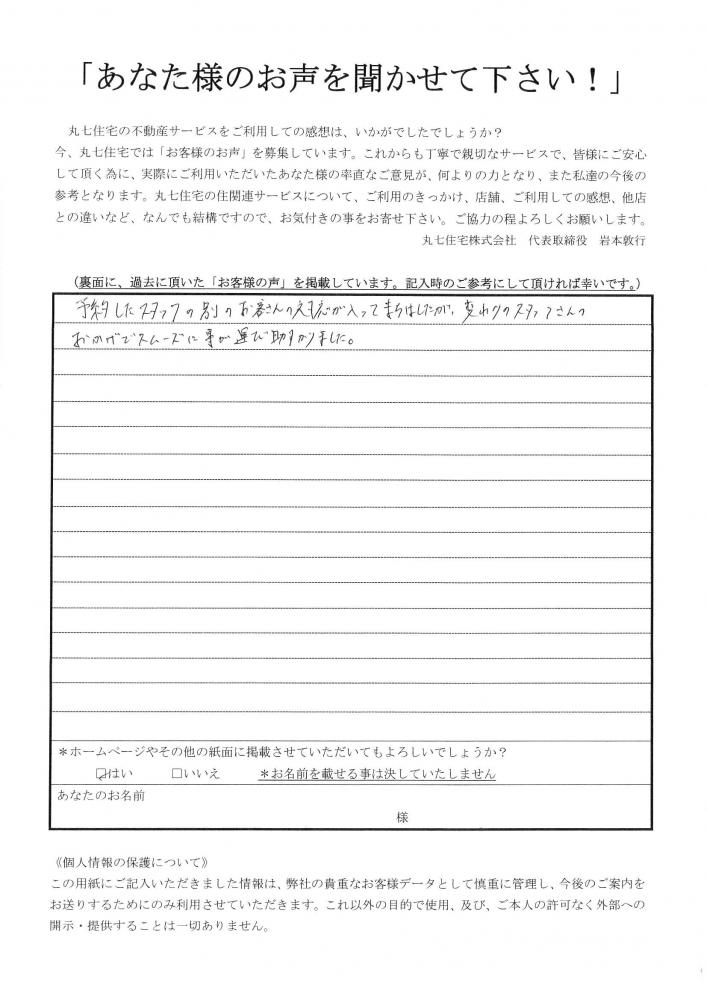 「あなた様のお声を聞かせて下さい！」
丸七住宅の不動産サービスをご利用しての感想は、いかがでしたでしょうか？
今、丸七住宅では「お客様のお声」を募集しています。これからも丁寧で親切なサービスで、皆様にご安心
して頂く為に、実際にご利用いただいたあなた様の率直なご意見が、何よりの力となり、また私達の今後の
参考となります。丸七住宅の住関連サービスについて、ご利用のきっかけ、店舗、ご利用しての感想、他店
との違いなど、なんでも結構ですので、お気付きの事をお寄せ下さい。ご協力の程よろしくお願いします。
丸七住宅株式会社　代表取締役　岩本敦行
（裏面に、過去に頂いた「お客様の声」を掲載しています。記入時のご参考にして頂ければ幸いです。）
予約したスタッフの別のお客さんの対応が入ってまちはしたが、変わりのスタッフさんの
おかげでスムーズに事が運び助すかりました。
＊ホームページやその他の紙面に掲載させていただいてもよろしいでしょうか？
☑はい　□いいえ　＊お名前を載せる事は決していたしません
あなたのお名前
様
《個人情報の保護について》
この用紙にご記入いただきました情報は、弊社の貴重なお客様データとして慎重に管理し、今後のご案内を
お送りするためにのみ利用させていただきます。これ以外の目的で使用、及び、ご本人の許可なく外部への
開示・提供することは一切ありません。